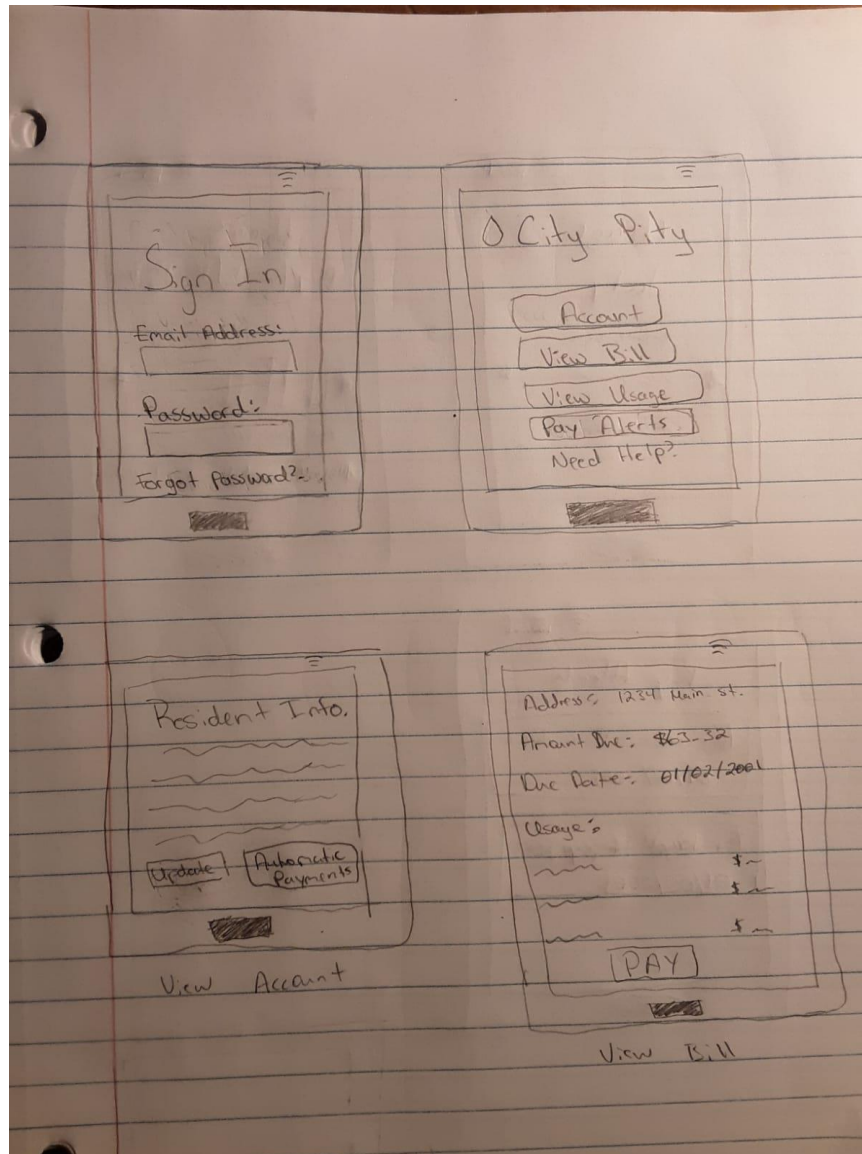 Sign In
Email Address:
Password:
Forgot Password?
O City Pity
Account
View Bill
View Usage
Pay Alerts
Need Help?
Resident Info.
Update
Automatic
Payments
View Account
Address: 1234 Main st.
Amount Due: $63.32
Due Date: 01/02/2001
Usage:
$
$
$
PAY
View Bill